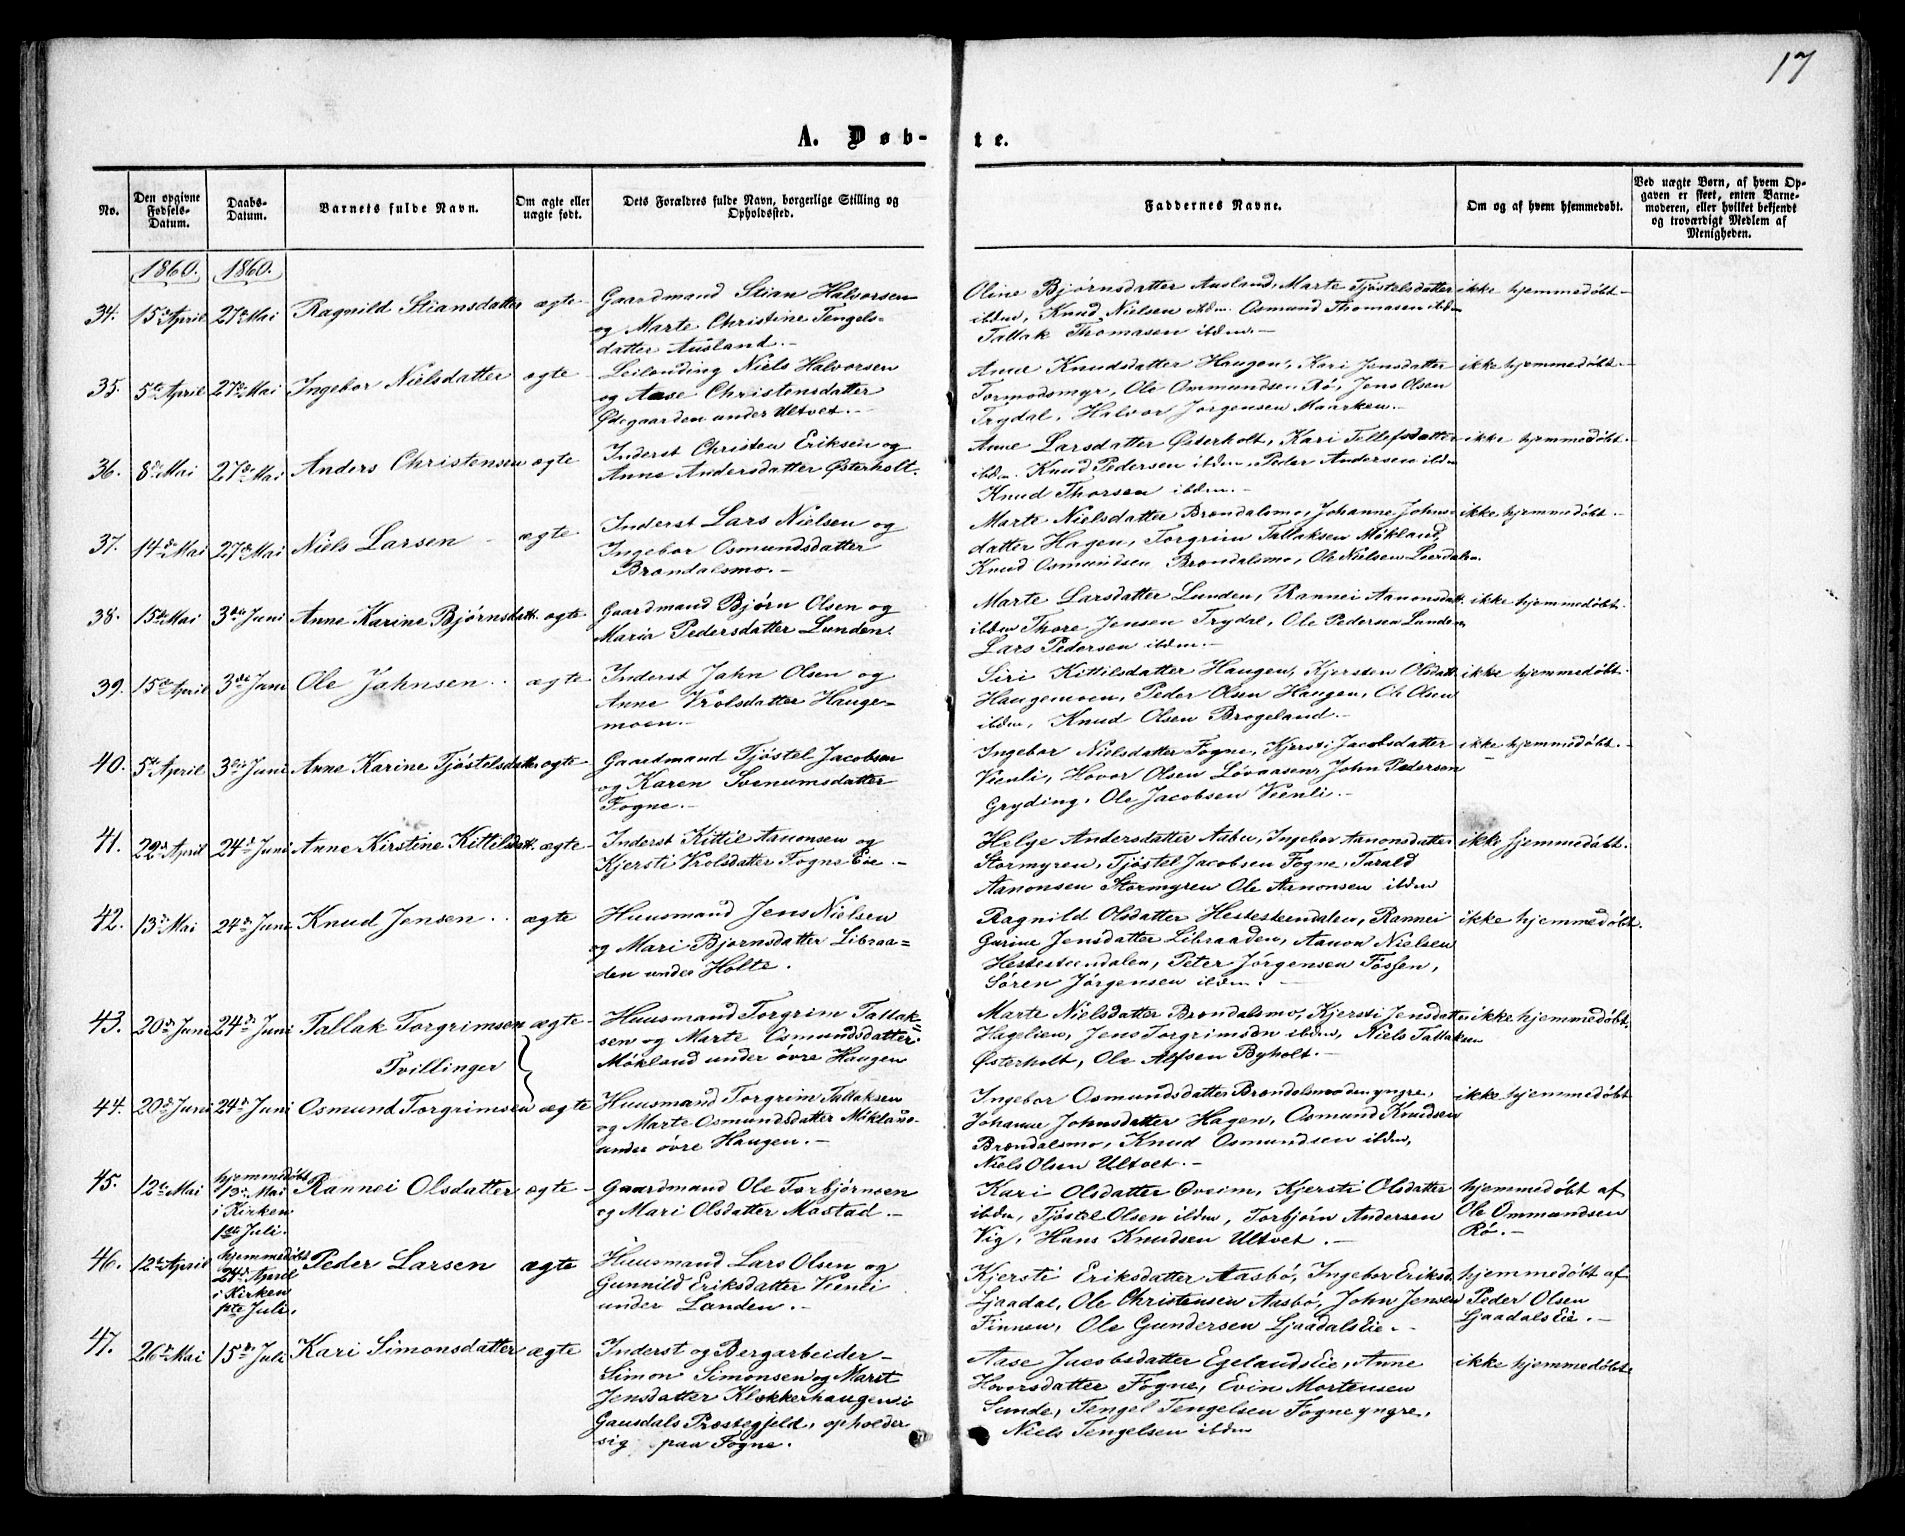 17
A. Døb-
te.
No.
Den opgivne Fødsels-Datum.
Daabs-Datum.
Barnets fulde Navn.
Om ægte eller uægte født.
Dets Forældres fulde Navn, borgerlige Stilling og Opholdssted.
Faddernes Navne.
Om og af hvem hjemmedøbt.
Ved uægte Børn, af hvem Opgaven er skeet, enten Barnemoderen, eller hvilket bekjendt og troværdigt Medlem af Menigheden.
1860. 1860.
34. 15de April 27de Mai Ragnild Stiansdatter ægte
Gaardmand Stian Halvorsen
og Marte Christine Tengels-
datter Ausland.
Oline Bjørnsdatter Ausland, Marte Tjøstelsdatter
ibdm, Knud Nielsen ibdm. Osmund Thomasen ibdm
Tallak Thomasen ibdm.
ikke hjemmedøbt
35. 5te April 27de Mai Ingebor Nielsdatter ægte
Leilending Niels Halvorsen
og Aase Christensdatter
Ødegaarden under Ultvet.
Anne Knudsdatter Haugen, Kari Jensdatter
Tormodsmyr, Ole Ommundsen Rø, Jens Olsen
Trydal, Halvor Jørgensen Maarken.
ikke hjemmedøbt
36. 8de Mai 27de Mai Anders Christensen ægte
Inderst Christen Eriksen og
Anne Andersdatter Østerholt.
Anne Larsdatter Østerholt, Kari Tellefsdatter
ibdm. Knud Pedersen ibdm, Peder Andersen ibdm
Knud Thorsen ibdm.
ikke hjemmedøbt.
37. 14de Mai 27de Mai Niels Larsen ægte
Inderst Lars Nielsen og
Ingebor Osmundsdatter
Brøndalsmo.
Marte Nielsdatter Brøndalsmo, Johanne Johns-
datter Hagen, Torgrim Tallaksen Møkland,
Knud Osmundsen Brøndalsmo, Ole Nielsen Leerdalen.
ikke hjemmedøbt.
38. 15de Mai 3die Juni Anne Karine Bjørnsdatt. ægte
Gaardmand Bjørn Olsen og
Maria Pedersdatter Lunden.
Marte Larsdatter Lunden, Rannei Aanonsdatt.
ibdm Thore Jensen Trydal, Ole Pedersen Lunden,
Lars Pedersen ibdm.
ikke hjemmedøbt.
39. 15de April 3die Juni Ole Jahnsen ægte
Inderst Jahn Olsen og
Anne Vrolsdatter Hauge-
moen.
Siri Kittilsdatter Haugen, Kjersten Olsdatt.
Haugemoen, Peder Olsen Haugen, Ole Olsen
ibdm, Knud Olsen Brogeland.
ikke hjemmedøbt.
40. 5te April 3die Juni Anne Karine Tjøstelsdatter ægte
Gaardmand Tjøstel Jacobsen
og Karen Svenumsdatter
Fogne.
Ingebor Nielsdatter Fogne, Kjersti Jacobsdatter
Vienli, Hovor Olsen Løvaasen, John Pedersen
Gryding, Ole Jacobsen Vienli.
ikke hjemmedøbt.
41. 22de April 24de Juni Anne Kirstine Kittilsdatt. ægte
Inderst Kittil Aanonsen og
Kjersti Vrolsdatter Fogne Eie.
Helje Andersdatter Aabu, Ingebor Aanonsdatter
Stormyren, Tjøstel Jacobsen Fogne, Tarald
Aanonsen Stormyren Ole Aanonsen ibdm
ikke hjemmedøbt.
42. 13de Mai 24de Juni Knud Jensen ægte
Huusmand Jens Nielsen
og Mari Bjørnsdatter Libraa-
den under Holte.
Ragnild Olsdatter Hestesteendalen, Rannei
Gurine Jensdatter Libraaden, Aanon Nielsen
Hestesteendalen, Peter Jørgensen Fossen,
Søren Jørgensen ibdm.
ikke hjemmedøbt.
43. 20de Juni 24de Juni Tallak Torgrimsen ægte
Tvillinger
Huusmand Torgrim Tallak-
sen og Marte Osmundsdatter
Møkland under øvre Haugen
Marte Nielsdatter Brøndalsmo, Kjersti Jensdatter
Hagelien, Jens Torgrimsen ibdm, Niels Tallaksen
Østerholt, Ole Alfsen Byholt.
ikke hjemmedøbt.
44. 20de Juni 24de Juni Osmund Torgrimsen ægte
Huusmand Torgrim Tallaksen
og Marte Osmundsdatter Møkland
under øvre Haugen.
Ingebor Osmundsdatter Brøndalsmo den yngre,
Johanne Johnsdatter Hagen, Osmund Knudsen
Brøndalsmo, Knud Osmundsen ibdm,
Niels Olsen Ultvet.
ikke hjemmedøbt
45. 12te Mai hjemmedøbt
13de Mai
i Kirken
1ste Juli.
Rannei Olsdatter ægte
Gaardmand Ole Torbjørnsen
og Mari Olsdatter Mostad.
Kari Olsdatter Oveim, Kjersti Olsdatter
ibdm, Tjøstel Olsen ibdm, Torbjørn Andersen
Vig, Hans Knudsen Ultvet.
hjemmedøbt af
Ole Ommundsen
Rø.
46. 12te April hjemmedøbt
24de April
i Kirken
1ste Juli.
Peder Larsen ægte
Huusmand Lars Olsen og
Gunnild Eriksdatter Vienli
under Landen.
Kjersti Eriksdatter Aasbø, Ingebor Eriksd.
Ljaadal, Ole Christensen Aasbø, John Jensen
Finnen, Ole Gundersen Ljaadals Eie.
hjemmedøbt af
Peder Olsen
Ljaadals Eie.
47. 26de Mai 15de Juli Kari Simonsdatter ægte
Inderst og Bergarbeider
Simon Simonsen og Marit
Jensdatter Klokkerhaugen i
Gausdals Præstegjeld, opholder
sig paa Fogne.
Aase Jacobsdatter Egelands Eie, Anne
Hovorsdatter Fogne, Evin Mortensen
Sunde, Tengel Tengelsen Fogne yngre,
Niels Tengelsen ibdm
ikke hjemmedøbt